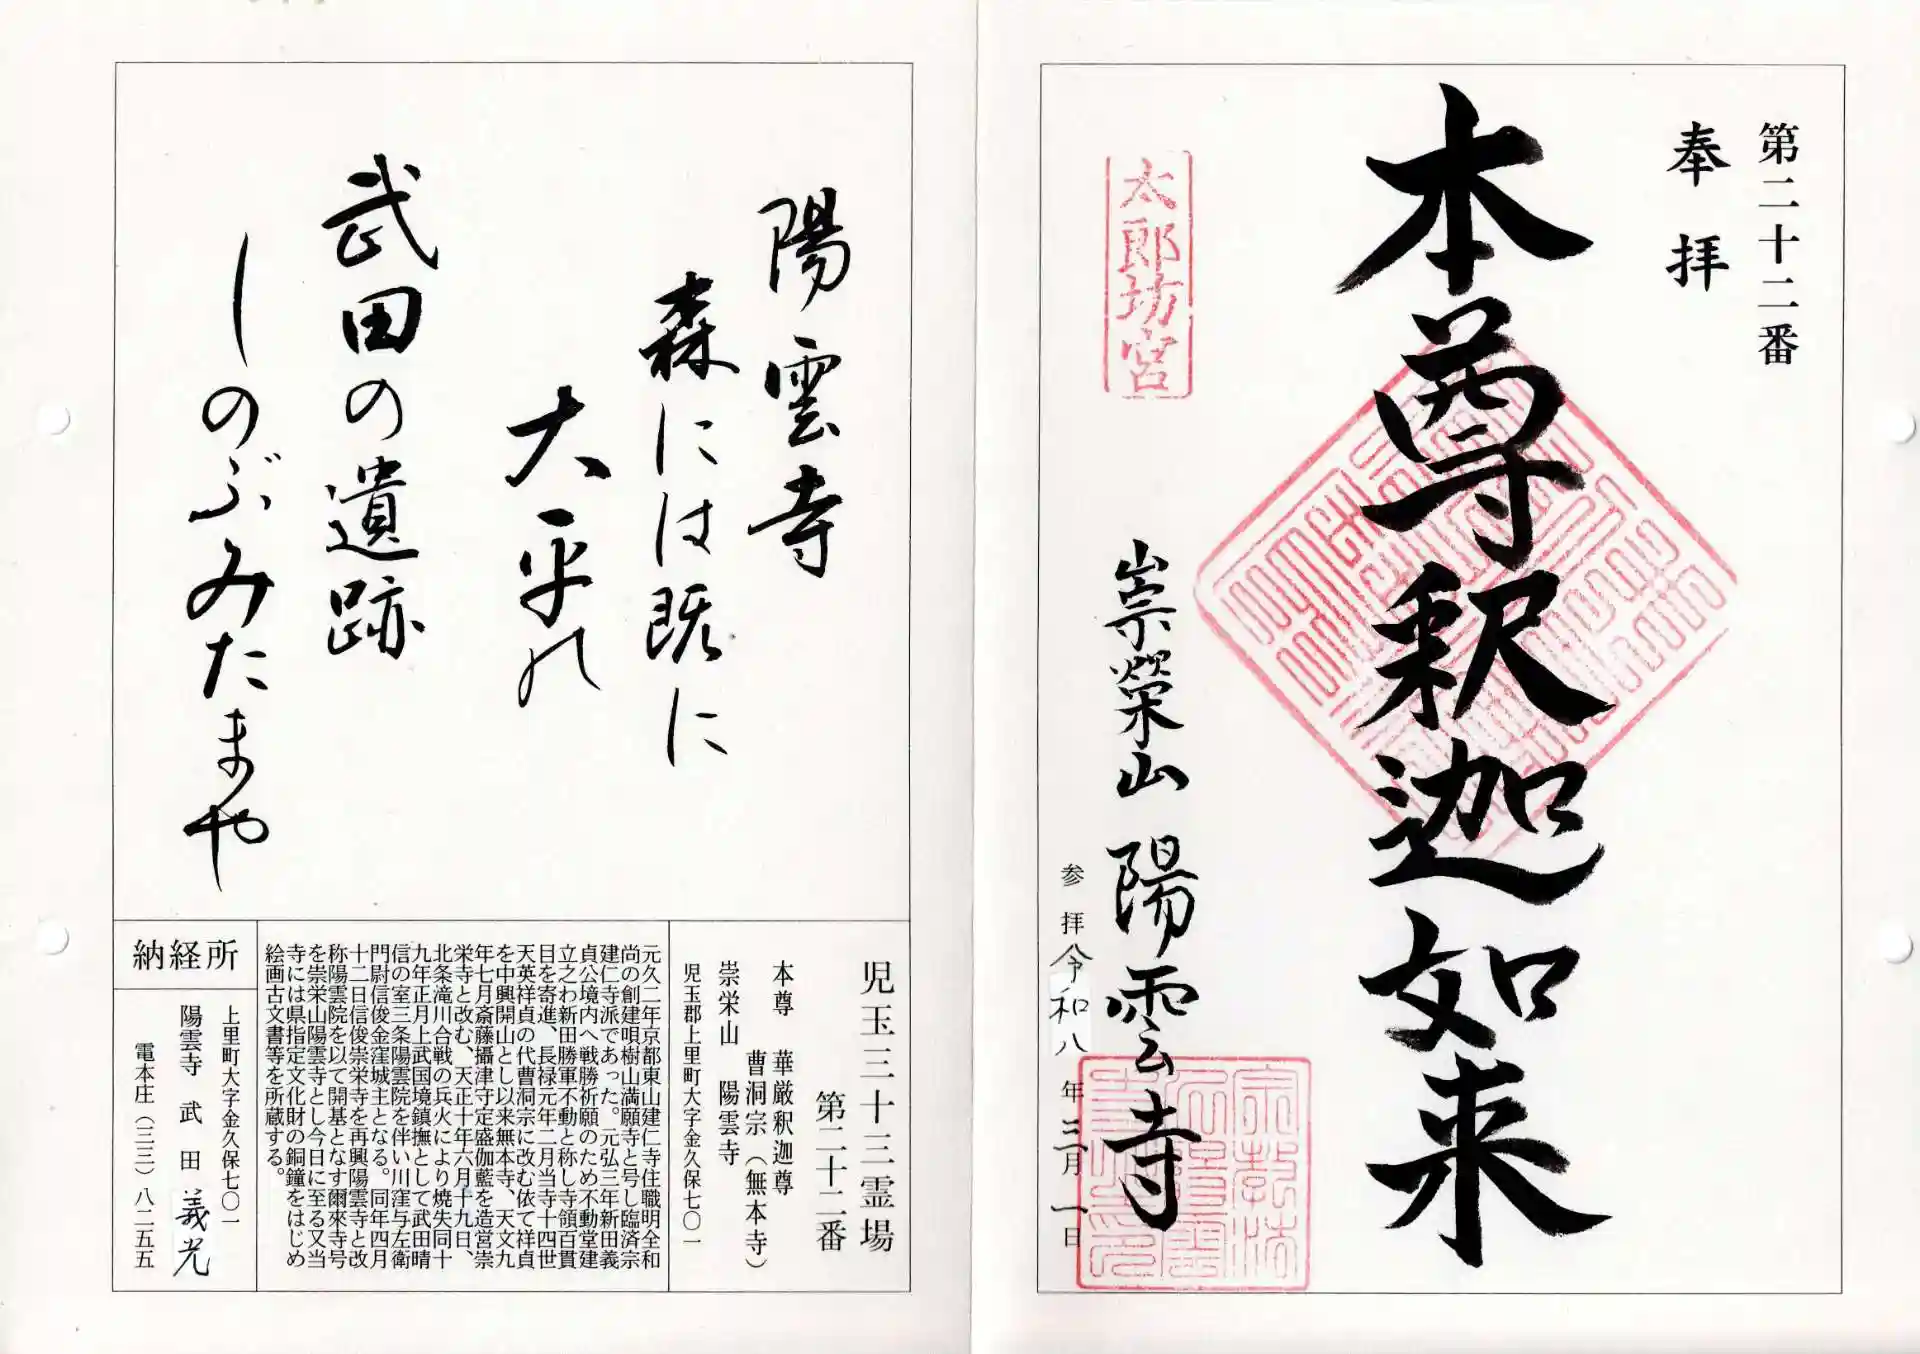 第二十二番
奉拝
本尊釈迦如来
太郎坊宮
崇榮山 陽雲寺
参拝令和八年三月一日
陽雲寺
森には既に
大平の
武田の遺跡
しのぶみたまや
児玉三十三霊場
第二十二番
本尊 華厳釈迦尊
曹洞宗（無本寺）
崇栄山 陽雲寺
児玉郡上里町大字金久保七〇一
元久二年京都東山建仁寺住職明全和
尚の創建唄樹山満願寺と号し臨済宗
建仁寺派であった。元弘三年新田義
貞公境内へ戦勝祈願のため不動堂建
立之わ新田勝軍不動と称し寺領百貫
目を寄進、長禄元年二月当寺十四世
天英祥貞の代曹洞宗に改む依て祥貞
を中興開山とし以来無本寺、天文九
年七月斎藤攝津守定盛伽藍を造営崇
栄寺と改む、天正十年六月十九日、
北条滝川合戦の兵火により焼失同十
九年正月上武国境鎮撫として武田晴
信の室三条陽雲院を伴い川窪与左衛
門尉信俊金窪城主となる。同年四月
十二日信俊崇栄寺を再興陽雲寺と改
称陽雲院を以て開基となす爾來寺号
を崇栄山陽雲寺とし今日に至る又当
寺には県指定文化財の銅鐘をはじめ
絵画古文書等を所蔵する。
納経所
上里町大字金久保七〇一
陽雲寺 武田 義光
電本庄（三三）八二五五